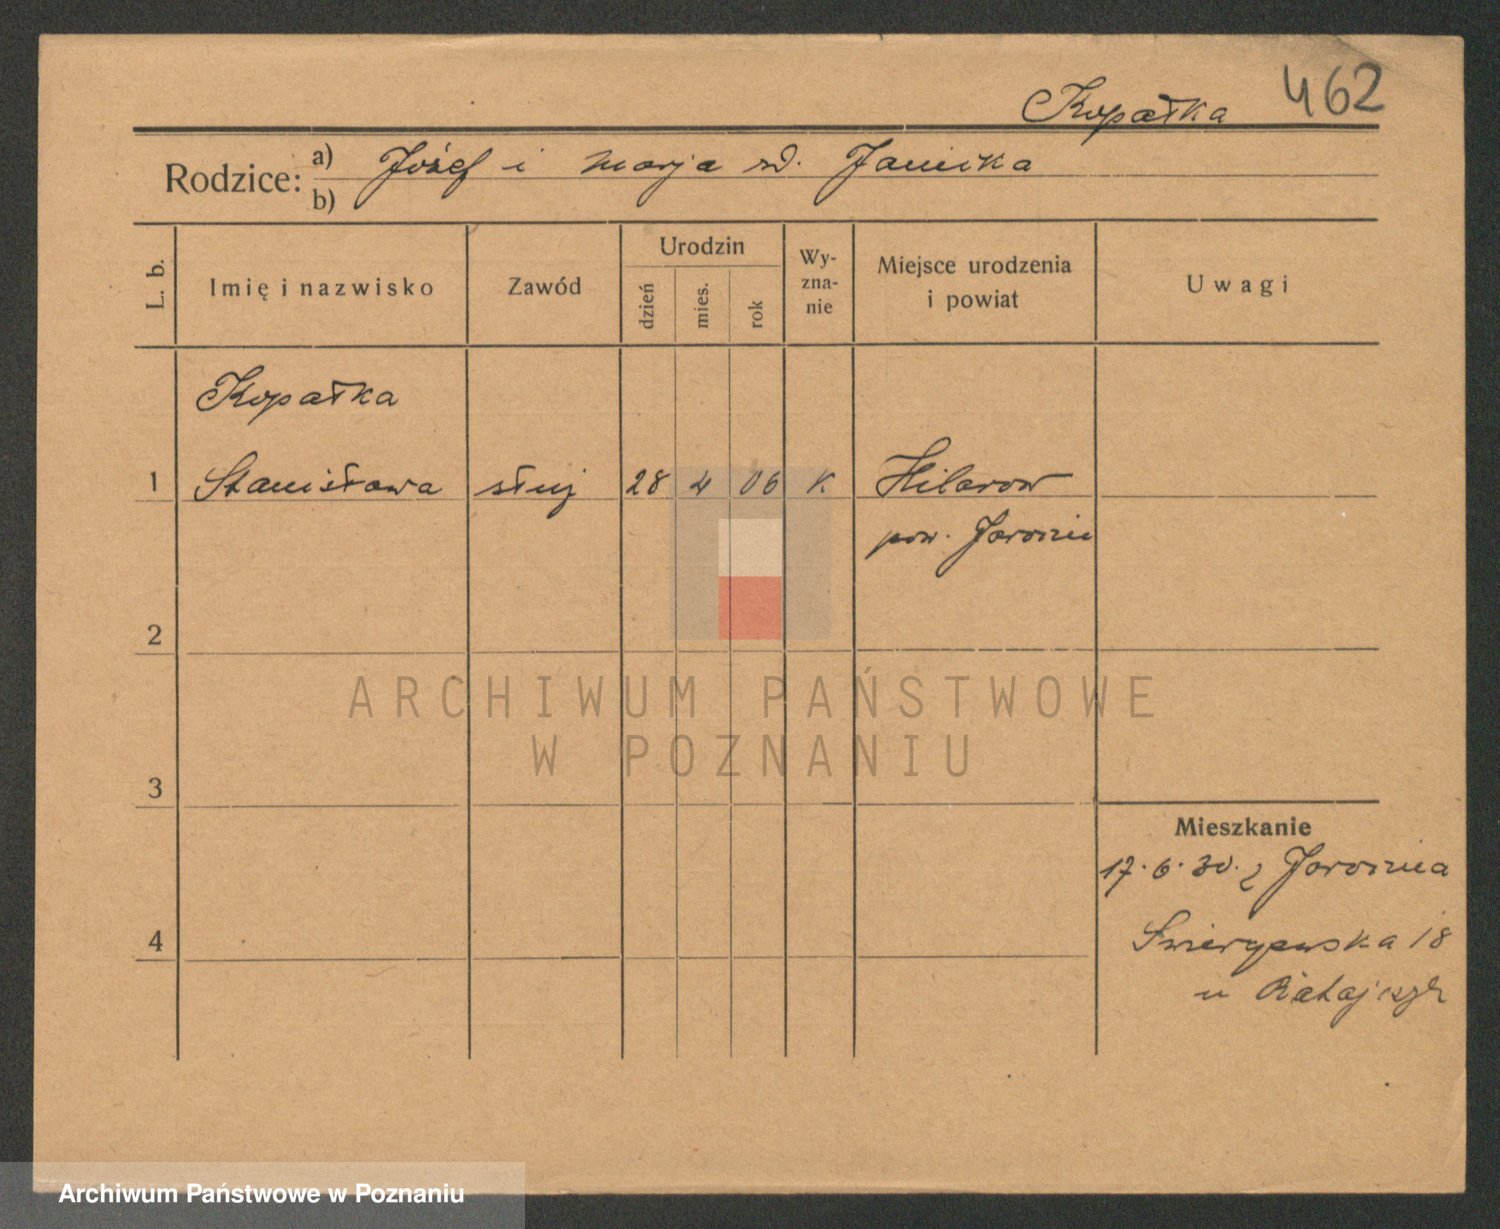 462
Kopałka
Rodzice: a) Józef i Marja rd. Janicka
b)
L. b.
Imię i nazwisko
Zawód
Urodzin
dzień
mies.
rok
Wy-
zna-
nie
Miejsce urodzenia
i powiat
Uwagi
Kopałka
1 Stanisława służ 28 4 06 K Hilarow
pow. Jarocin
2
3
4
Mieszkanie
17.6.30. z Jarocina
18
u Ratajczak
ARCHIWUM PAŃSTWOWE
W POZNANIU
Archiwum Państwowe w Poznaniu